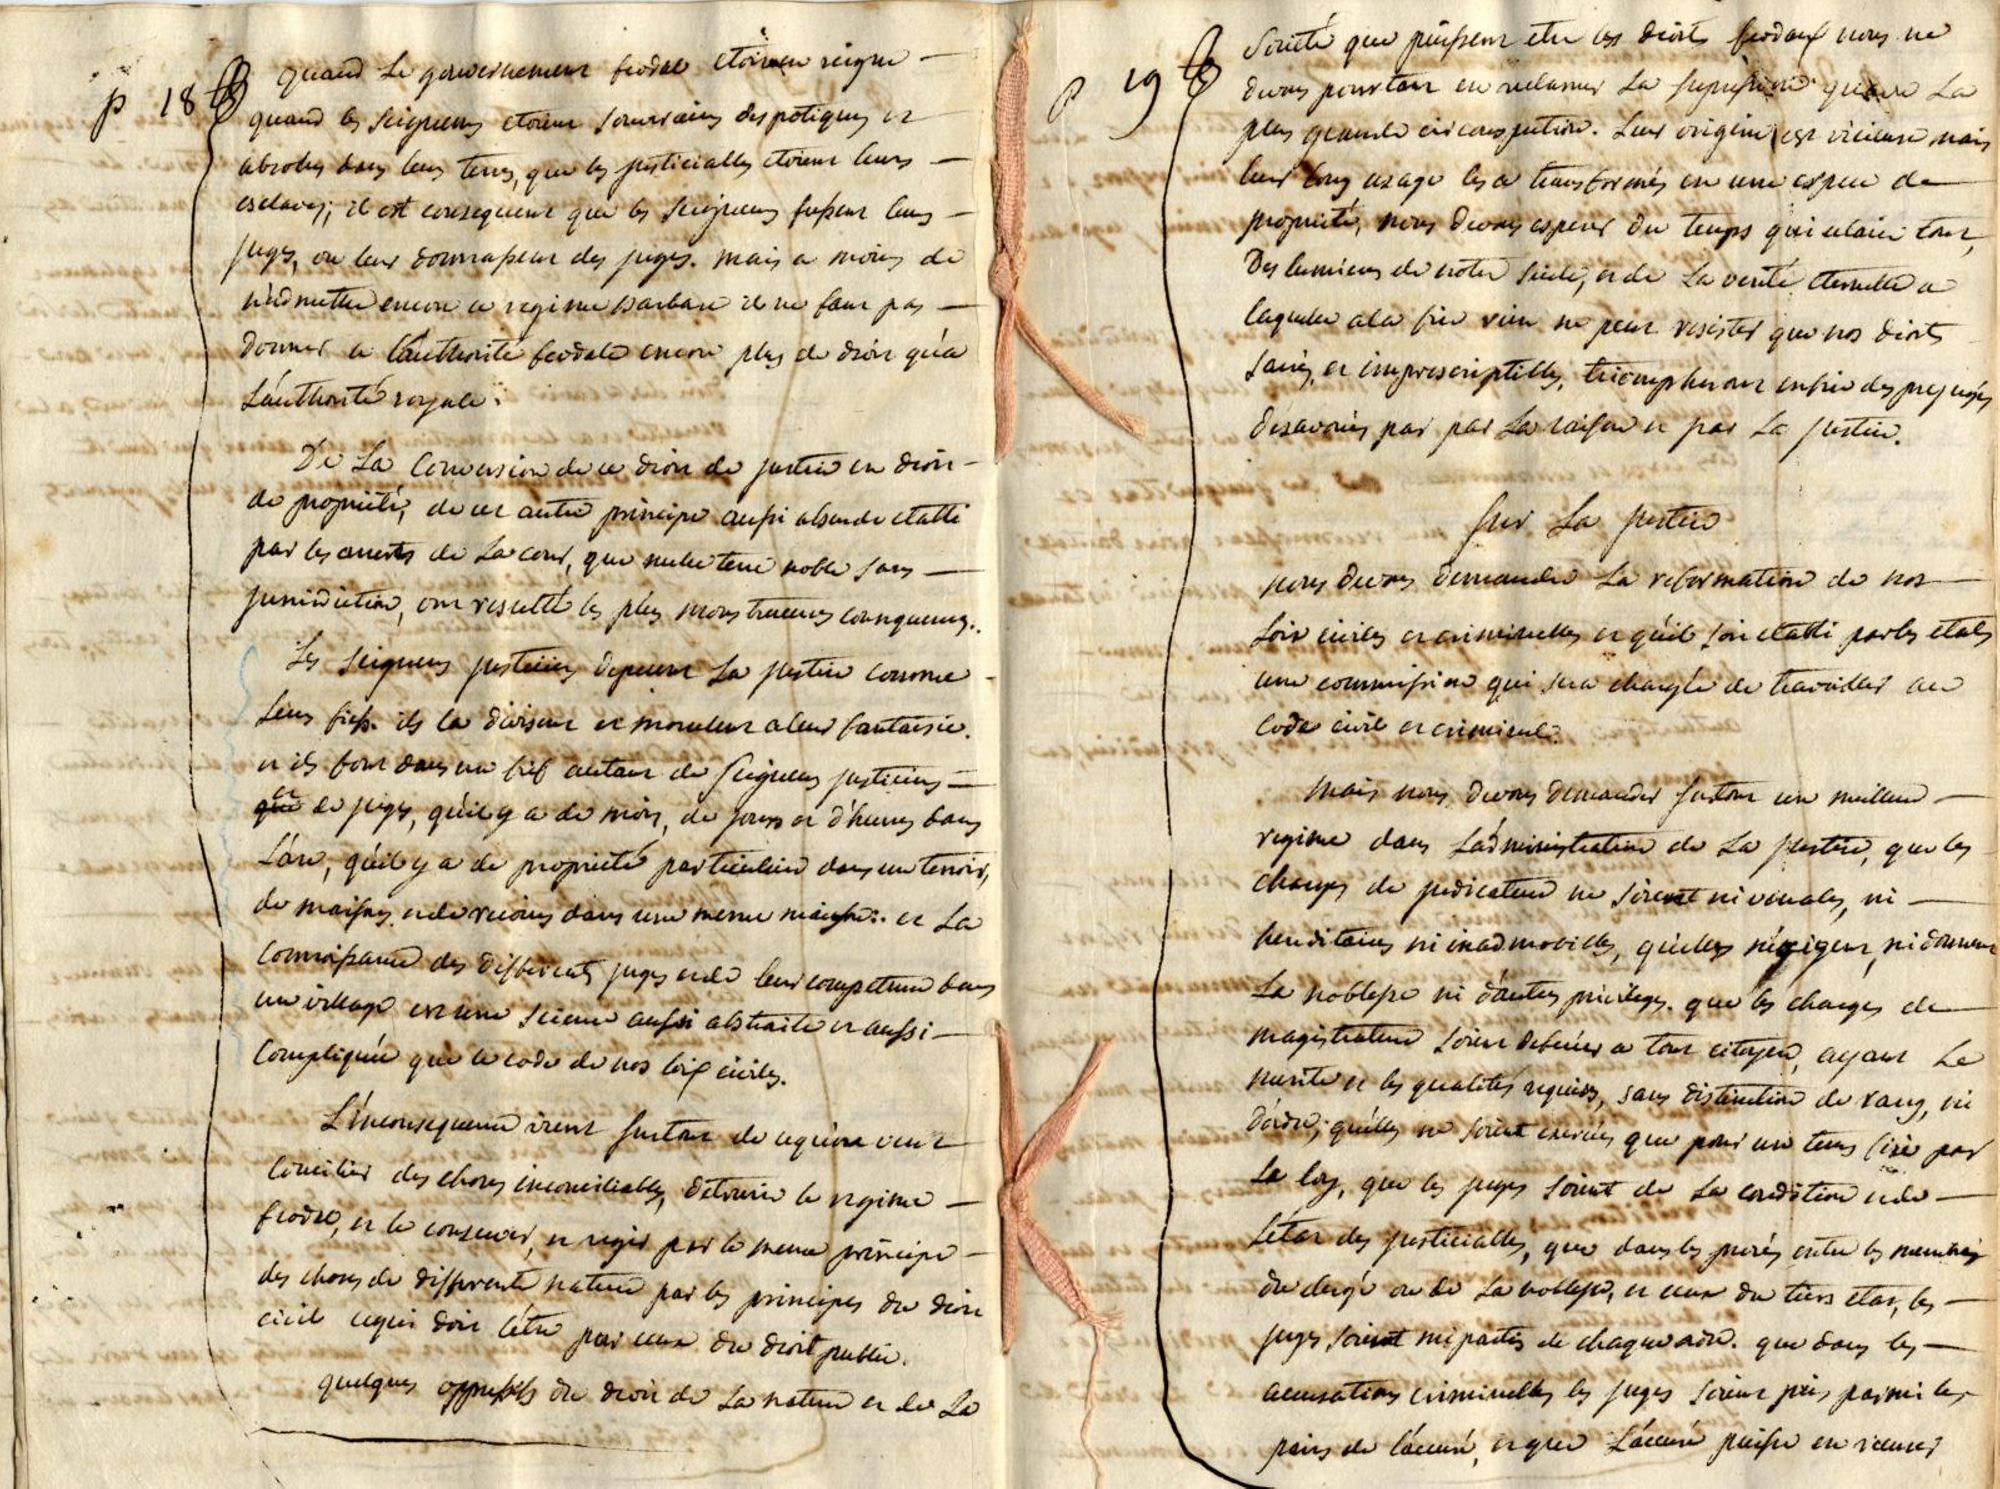 p 18
quand le gouvernement feodal etoient regne
quand les seigneurs etoient souverains despotiques et
absolus dans leurs terres, que les justiciables etoient leurs
esclaves; il est consequent que les seigneurs fussent leurs
juges, ou leur donnassent des juges. mais a moins de
n'admettre encore ce regime barbare il ne faut pas
donner a l'authorité feodale encore plus de droit qu'a
L'authorité royale.
De La Conversion de ce droit de justice en droit
de propriété, de cet autre principe aussi absurde etabli
par les arrets de La cour, que nulle terre noble sans
jurisdiction, ont resulté les plus monstrueuses consequences.
Les seigneurs justiciers depecent La justice comme
Leurs fiefs. ils la divisent et morcelent a leur fantaisie.
et ils font dans un fief autant de seigneurs justiciers
et de juges, qu'il y a de mois, de jours et d'heures dans
L'an, qu'il y a de propriété particuliere dans un terroir,
de maisons et de recoins dans une meme maison. et La
Connoissance des differents juges et de leur competence dans
un village est une science aussi abstraite et aussi
Compliquée que le code de nos loix civiles.
L'inconsequence vient surtout de ce qu'on veut
Concilier des choses inconciliables, detruire le regime
feodal, et le conserver, et regir par le meme principe
des choses de differente nature par les principes du droit
civil ce qui doit l'être par ceux du droit public.
quelques oppressifs du droit de La nature et de La
p 19
Societé que puissent etre les droits feodaux nous ne
devons pourtant en reclamer La supression qu'avec La
plus grande circonspection. Leur origine est vicieuse mais
leur long usage les a transformés en une espece de
proprieté, nous devons esperer du temps qui eclaire tout,
Des lumieres de notre siecle, et de La verité eternelle a
laquelle a la fin rien ne peut resister que nos droits
sacrés, et imprescriptibles, triompheront enfin des prejugés
desavoués par par La raison et par La justice.
sur La justice
nous devons demander La reformation de nos
Loix civiles et criminelles et qu'il soit etabli par les etats
une commission qui sera chargée de travailler au
Code civil et criminel.
Mais nous devons demander surtout un meilleur
regime dans L'administration de La justice, que les
charges de judicature ne soient ni venales, ni
hereditaires ni inadmovibles, qu'elles n'exigent, ni donnent
La noblesse ni d'autres privileges. que les charges de
magistrature soient deferées a tout citoyen, ayant Le
merite et les qualités requises, sans distinction de rang, ni
d'ordre; qu'elles ne soient exercées que pour un tems fixé par
La loy, que les juges soient de La condition et de
L'état des justiciables, que dans les procés entre les membres
du clergé ou de La noblesse, et ceux du tiers etat, les
juges soient mi partis de chaque ordre. que dans les
accusations criminelles les juges soient pris parmi les
pairs de l'accusé, et que L'accusé puisse en recuser